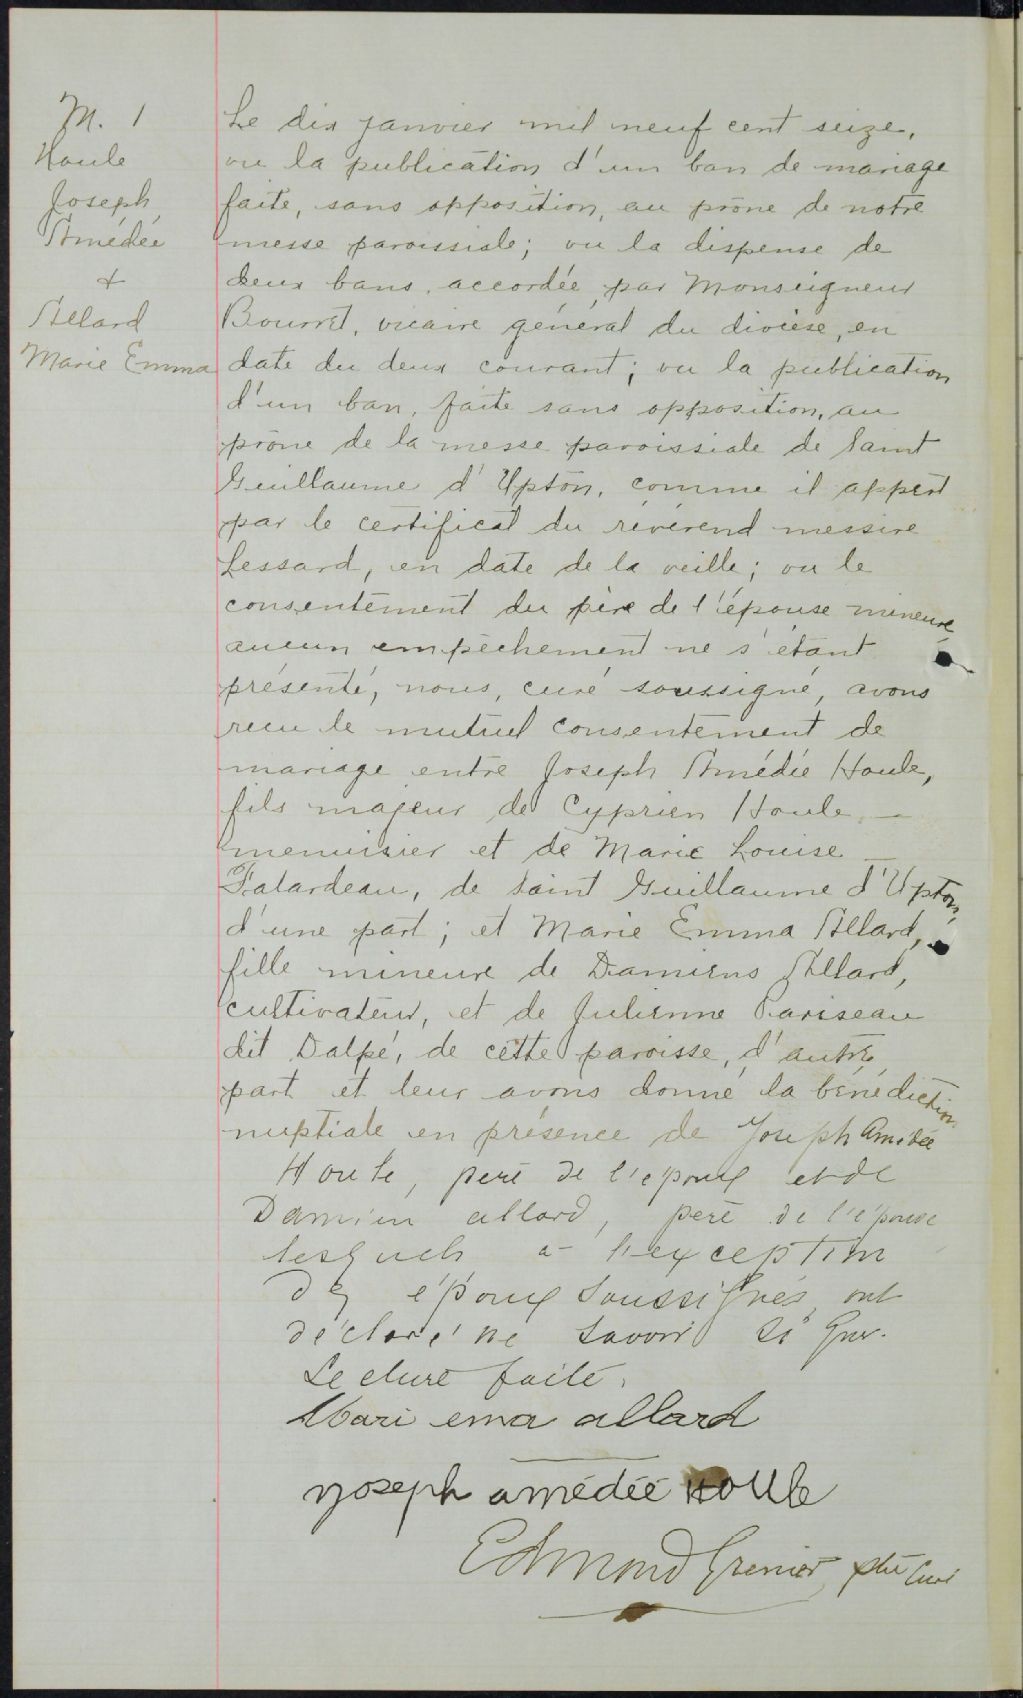 M. 1
Houle
Joseph
Amédée
&
Allard
Marie Emma
Le dix janvier mil neuf cent seize,
vu la publication d'un ban de mariage
faite, sans opposition, au prône de notre
messe paroissiale; vu la dispense de
deux bans, accordée, par Monseigneur
Bourret, vicaire général du diocèse, en
date du deux courant; vu la publication
d'un ban, faite sans opposition, au
prône de la messe paroissiale de Saint
Guillaume d'Upton, comme il appert
par le certificat du révérend messire
Lessard, en date de la veille; vu le
consentement du père de l'épouse mineure
aucun empêchement ne s'étant
présenté, nous, curé soussigné, avons
recu le mutuel consentement de
mariage entre Joseph Amédée Houle,
fils majeur de Cyprien Houle, —
menuisier et de Marie Louise —
Falardeau, de Saint Guillaume d'Upton,
d'une part; et Marie Emma Allard,
fille mineure de Damiens Allard,
cultivateur, et de Julienne Pariseau
dit Dalpé, de cette paroisse, d'autre
part et leur avons donné la bénédiction
nuptiale en présence de Joseph Amédée
Houle, père de l'époux et de
Damien allard, père de l'épouse
lesquels a l'exception
des époux soussignés, ont
déclaré ne savoir signer.
Lecture faite.
Mari ema allard
Joseph amédée Houle
Edmond Grenier, ptre Curé